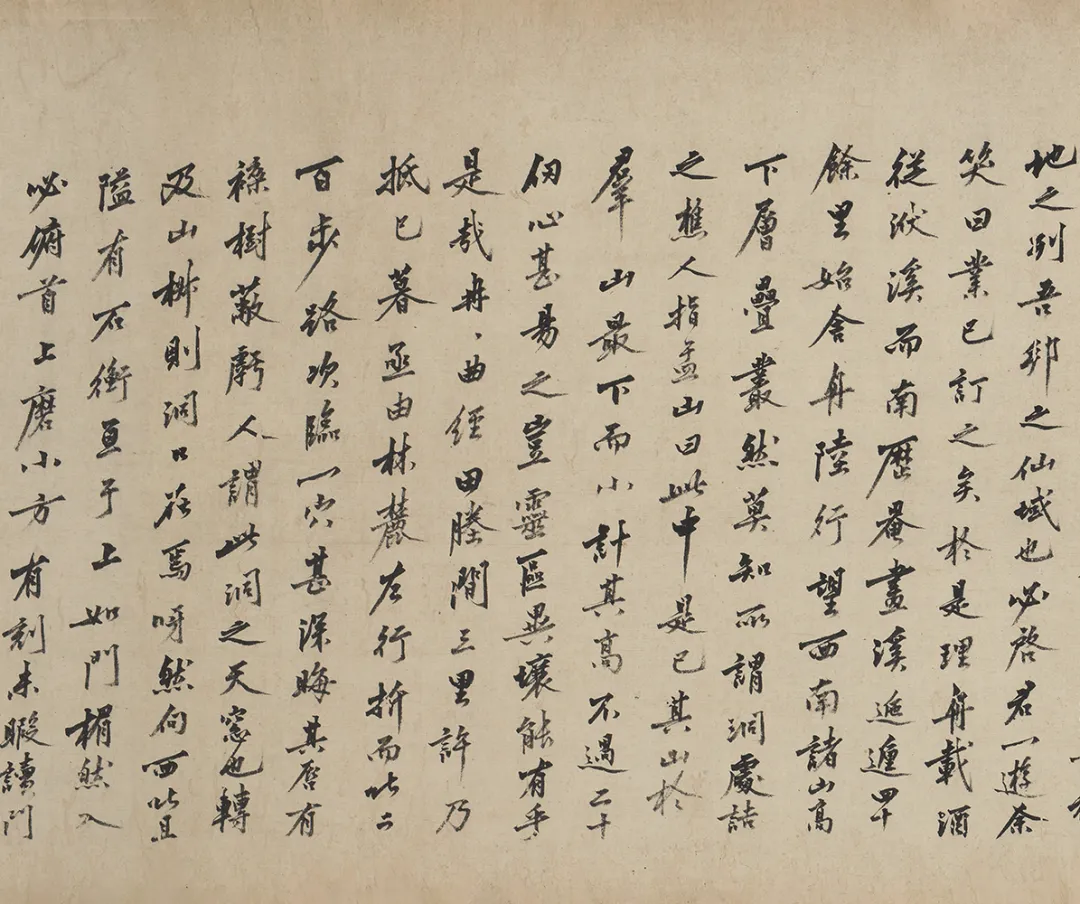 地之別吾鄉之仙域也必啓君一遊余
笑曰業已訂之矣於是理舟載酒
從洑溪而南歷罨畫溪迤邐四十
餘里始舍舟陸行望西南諸山高
下層疊叢然莫知所謂洞處詰
之樵人指孟山曰此中是已其山於
羣山最下而小計其高不過二十
仞心甚易之豈靈區異壤能有乎
是哉冉冉曲經田塍間三里許乃
抵已暮亟由林麓左行折而北二
百步路次臨一穴甚深晦其唇有
襍樹蔽虧人謂此洞之天窓也轉
及山椒則洞口在焉呀然向西北且
隘有石衡亘于上如門楣然入
必俯首上磨小方有刻未暇讀門